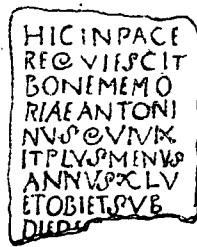 HIC IN PACE
REQVIESCIT
BONEMEMO
RIAE ANTONI
NVS QVI VIX
IT PLVS MENVS
ANNVS XLV
ET OBIET SVB
DIE